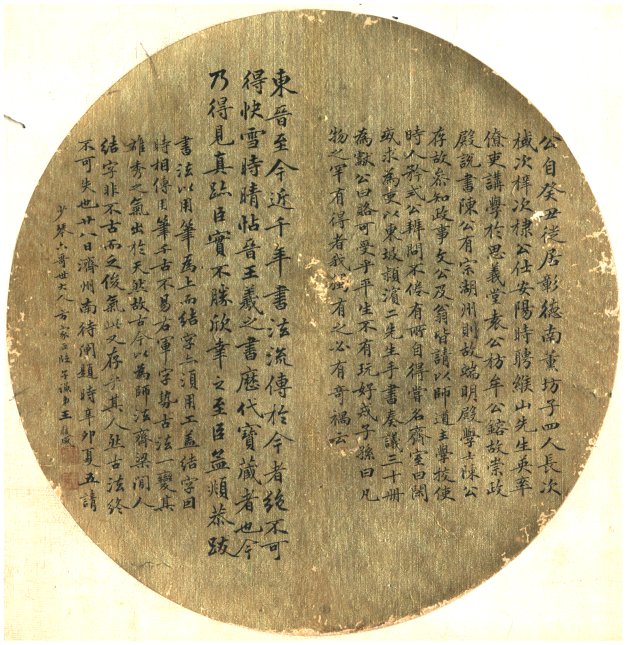 公自癸丑徙居彰德南董坊子四人長次
棫次梓次棣公仕安陽時聘緱山先生英率
僚吏講學於思義堂袁公枋牟公鎔故崇政
殿說書陳公有宗胡州則故端明殿學士陳公
存故參知政事文公及翁皆請以師道主學校使
時人矜式公辨問不倦有所自得嘗名齋室曰閑
或求為吏以東坡潁濱二先生手書奏議三十冊
為獻公曰賂可受乎平生不有玩好戒子孫曰凡
物之罕有得者我必有之必有奇禍云
東晉至今近千年書法流傳於今者絕不可
得快雪時晴帖晉王羲之書歷代寶藏者也今
乃得見真跡臣實不勝欣幸之至臣孟頫恭跋
書法以用筆為上而結字亦須用工蓋結字因
時相傳用筆千古不易右軍字勢古法一變其
雄秀之氣出於天然故古今以為師法齊梁間人
結字非不古而乏俊氣此又存乎其人然古法終
不可失也廿八日濟州南待閘題時辛卯夏五請
少琴六哥世大人方家正